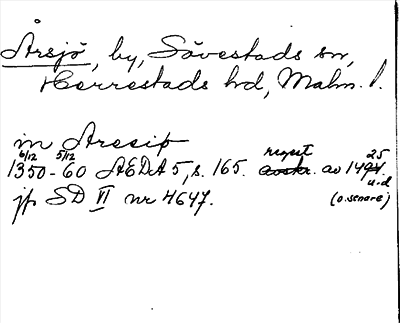 Årsjö, by, Sövestads sn,
Herrestads hd, Malm. l.
in Aressiø
6/12 5/12 regest 25
1350-60 ÆDA 5, s. 165. avskr. av 1494.
u.d
jfr SD VI nr 4647. (o. senare)